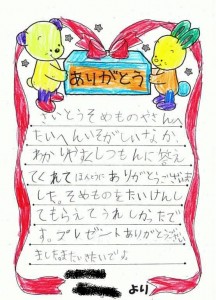 ありがとう
さいとうそめものやさんへ
たいへんいそがしいなか、
わかりやすくしつもんに答え
てくれてほんとうにありがとうございま
した。そめものをたいけんし
てもらえてうれしかったで
す。プレゼントありがとうござい
ましたまたいきたいでよ
より